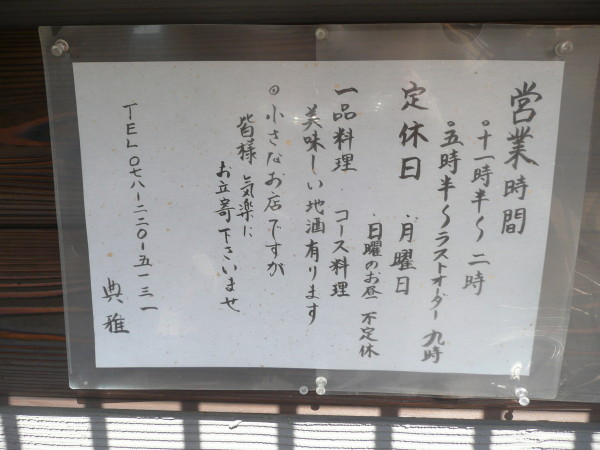 営業時間
。十一時半〜二時
。五時半〜ラストオーダー 九時
定休日 .月曜日
.日曜のお昼 不定休
一品料理 コース料理
美味しい地酒有ります
◎小さなお店ですが
皆様 気楽に
お立寄下さいませ
TEL〇七八ー二二〇ー五一三一
典雅